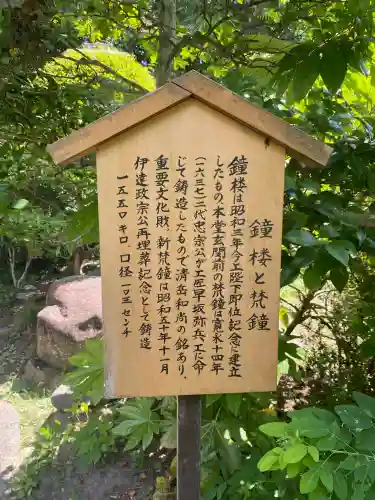 鐘楼と梵鐘
鐘楼は昭和三年今上陛下即位記念に建立
したもの、本堂玄関前の梵鐘は寛永十四年
(一六三七)二代忠宗公が工匠早坂弥兵ヱに命
じて鋳造したもので清岳和尚の銘あり、
重要文化財、新梵鐘は昭和五十年十一月
伊達政宗公再埋葬記念として鋳造
一五五〇キロ 口径一〇三センチ